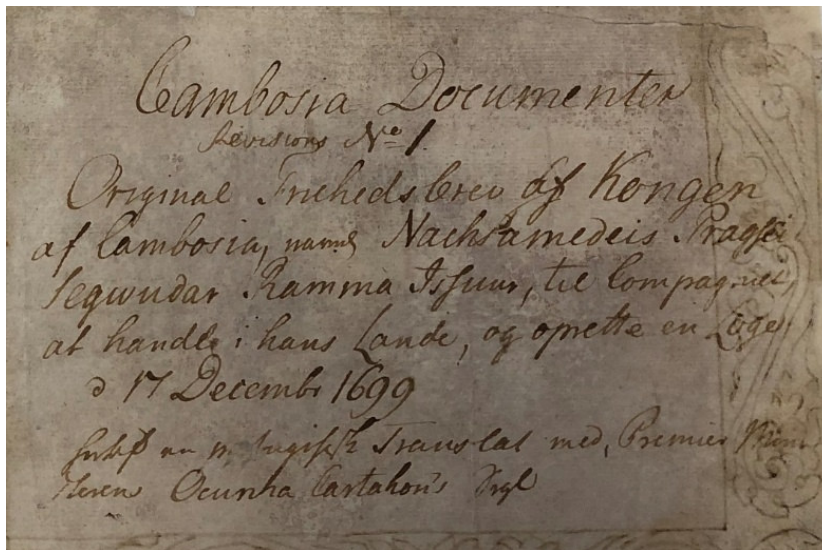 Cambosia Documenter
Revisions No 1.
Original Friehedsbrev af Kongen
af Cambosia, navnl Nachsamedeis Pragsei
Segwudar Ramma Issuur, til Compagniet,
at handle i hans Lande, og oprette en Loge,
d 17 Decembr 1699
Translat med, Premier
Ocunha Cartahons